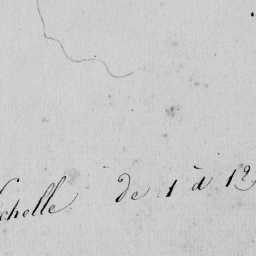 Echelle de 1 à 12